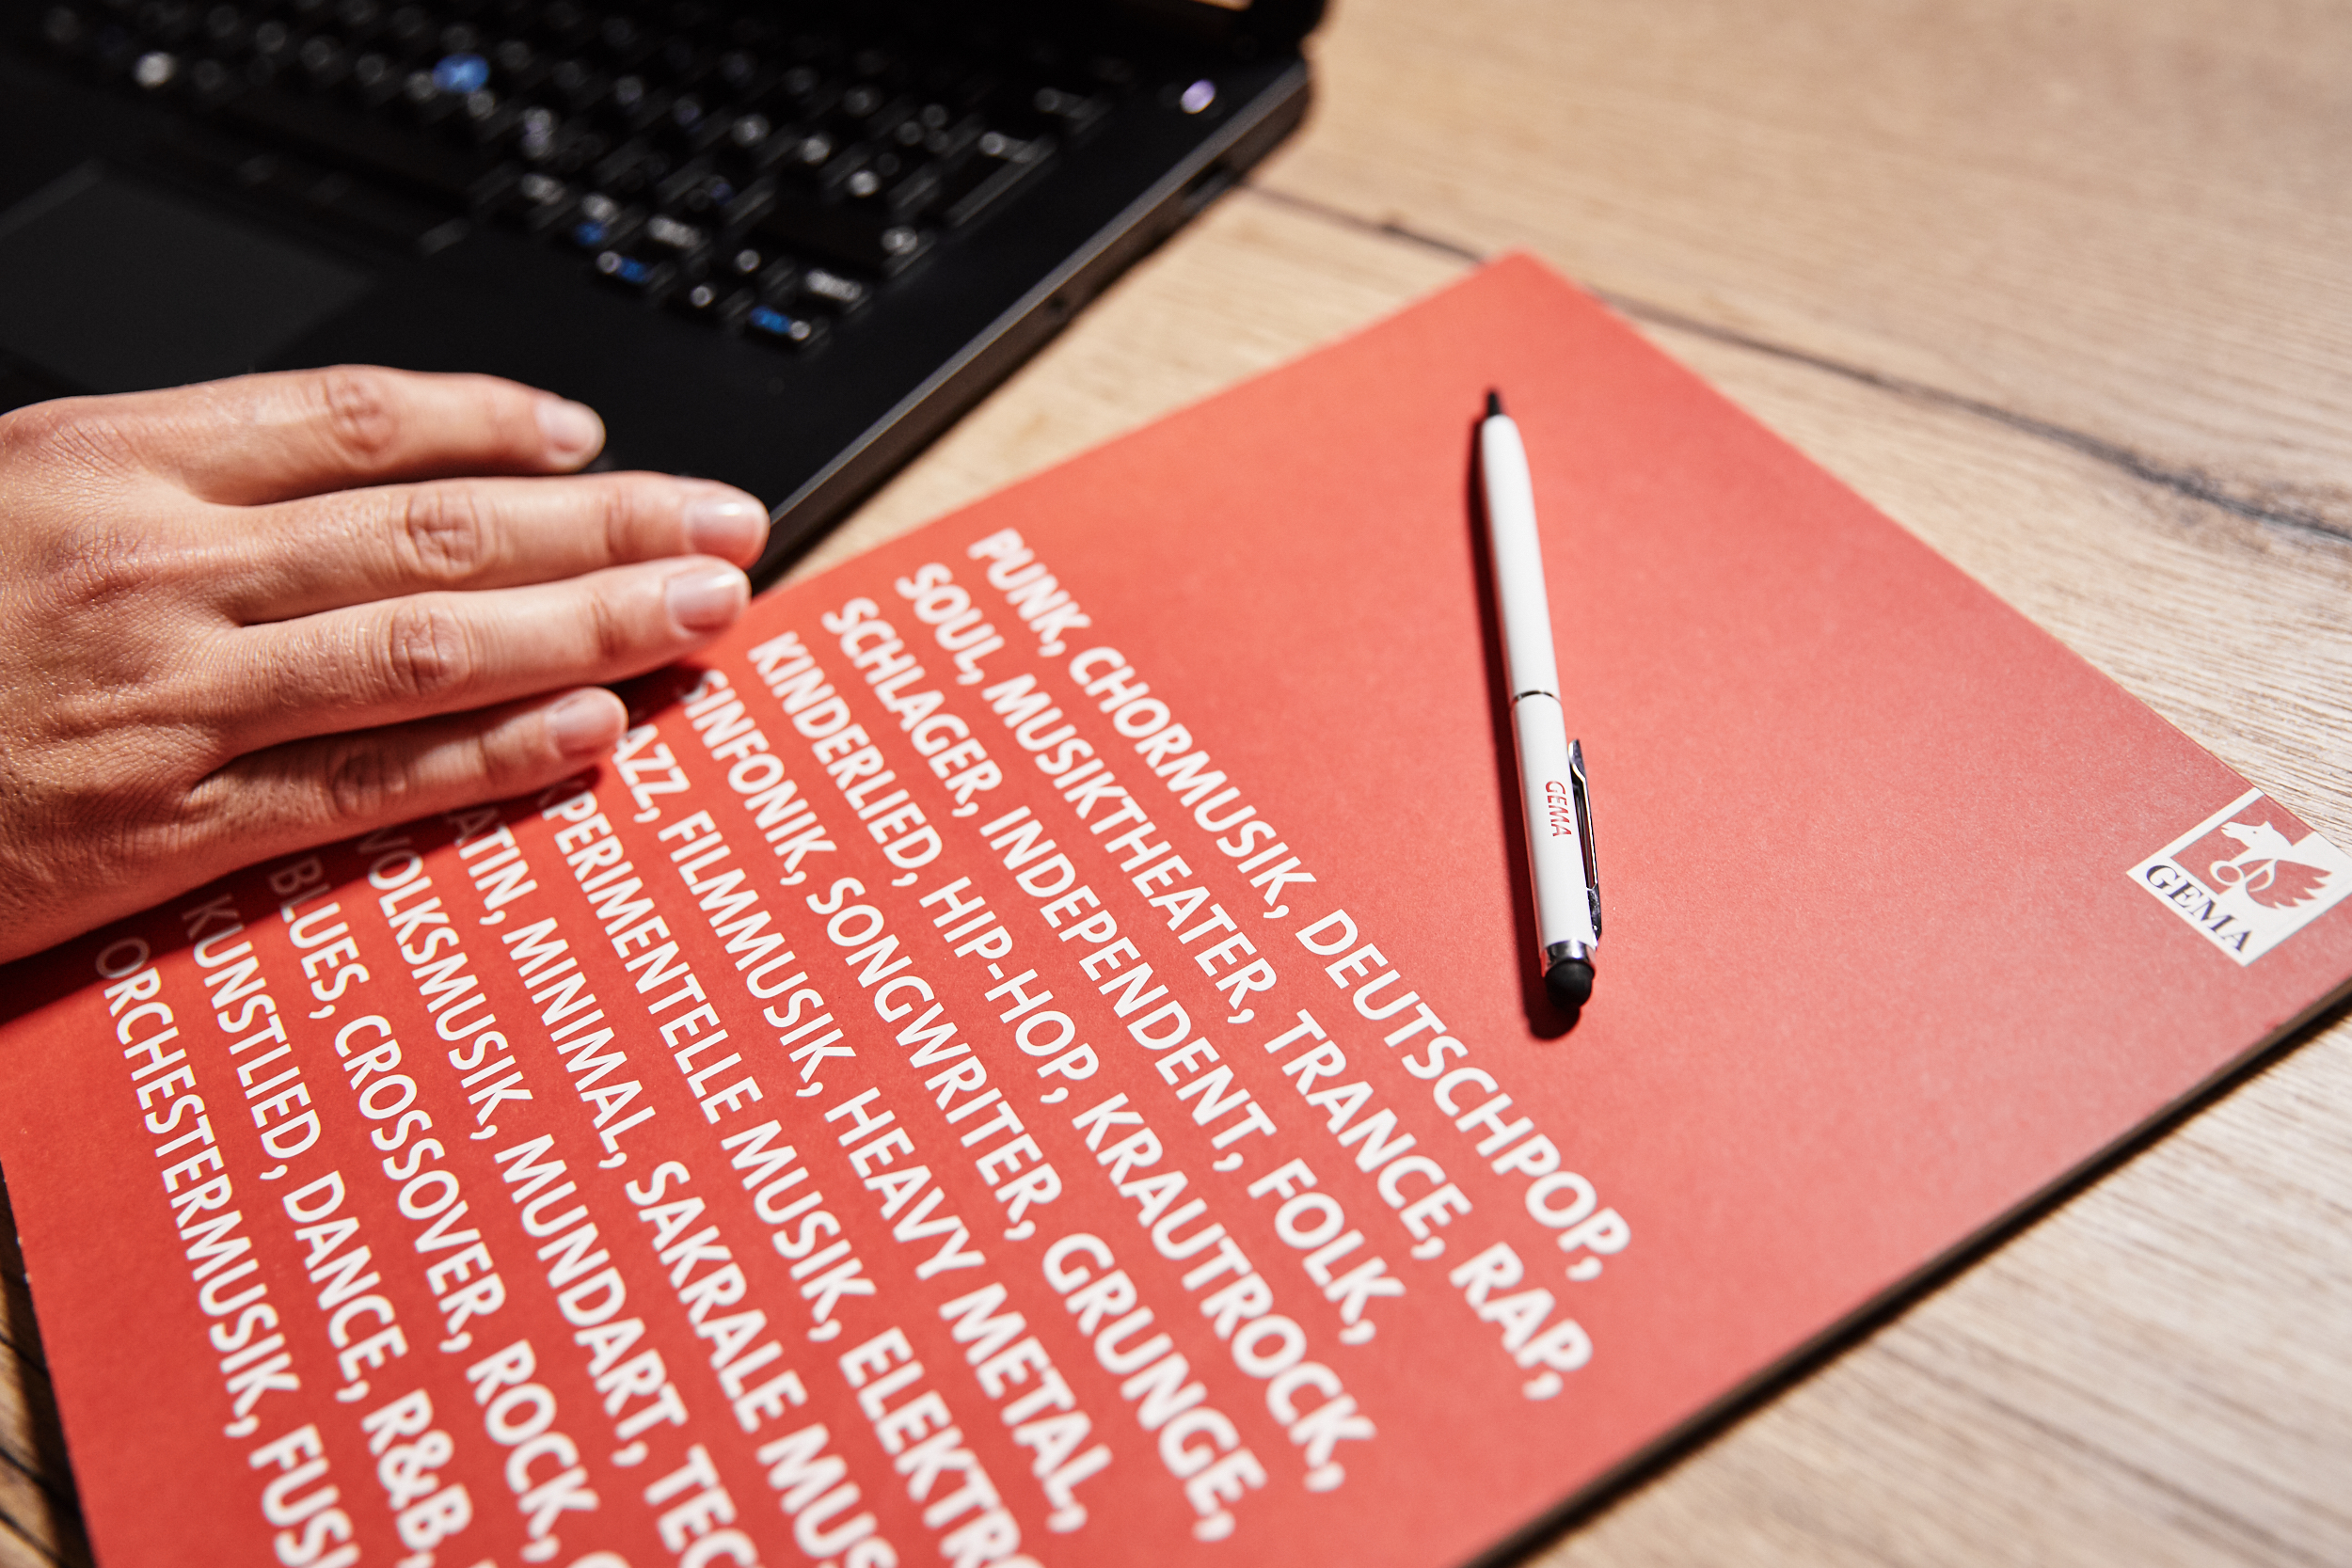 PUNK, CHORMUSIK, DEUTSCHPOP,
SOUL, MUSIKTHEATER, TRANCE, RAP,
SCHLAGER, INDEPENDENT, FOLK,
KINDERLIED, HIP-HOP, KRAUTROCK,
SINFONIK, SONGWRITER, GRUNGE,
AZZ, FILMMUSIK, HEAVY METAL,
PERIMENTELLE MUSIK, ELEKTRO
ATIN, MINIMAL, SAKRALE MUS
VOLKSMUSIK, MUNDART, TEC
BLUES, CROSSOVER, ROCK,
KUNSTLIED, DANCE, R&B,
ORCHESTERMUSIK, FUSI
GEMA
GEMA